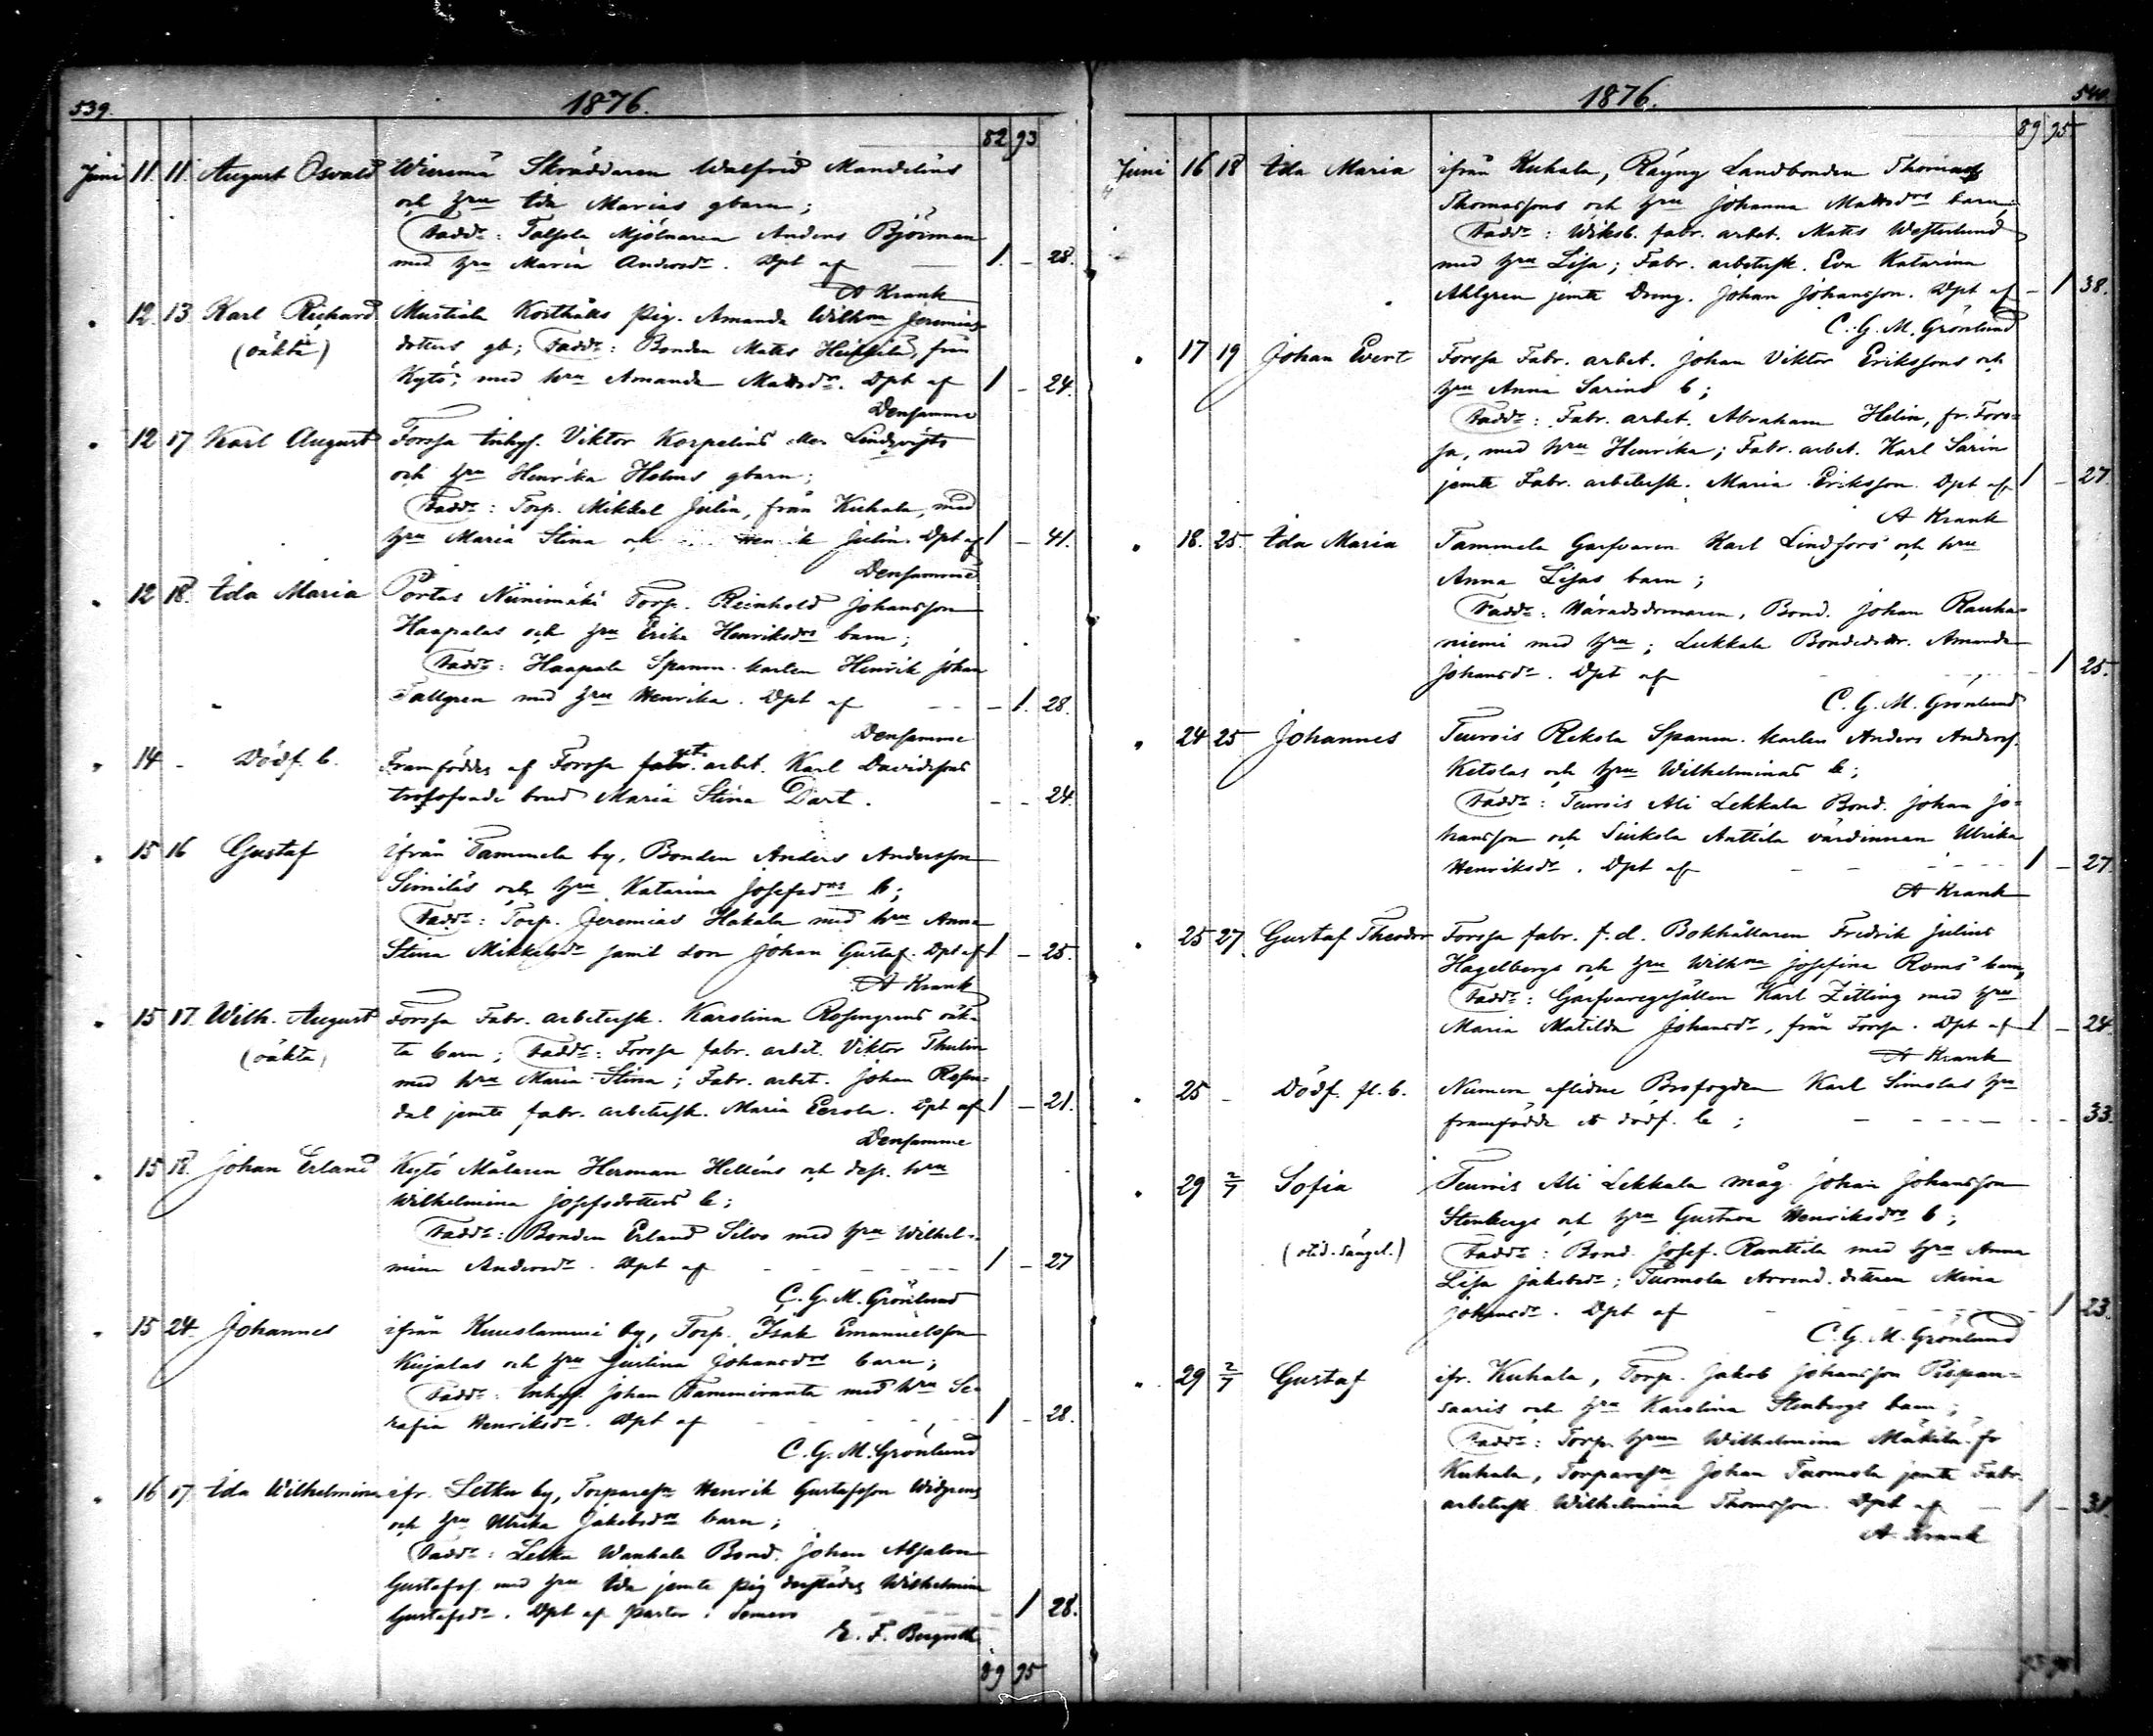 539.
1876.
82 93
Juni 11. 11. August Osvald Wiiremä Skräddaren Walfrid Mandelins
och hru Ida Marias gbarn;
Fadd: Talpela Mjölnaren Anders Björman
med hru Maria Andersdr. Dpt af 1. – 28.
A Krank
" 12. 13 Karl Richard Mustiala Kosthålls pig. Amanda Wilhna Jeremias-
(oäkta) dotters gb; Fadd: Bonden Matts Heikkilä, från
Kytö, med hru Amanda Mattsdr. Dpt af 1 – 24.
Densamme
" 12 17 Karl August Forssa Inhys. Viktor Korpelins eller Lindqvists
och hru Henrika Holms gbarn;
Fadd: Torp. Mikkel Julin, från Kuhala, med
hru Maria Stina och Julin. Dpt af 1 – 41.
Densamme
" 12 18. Ida Maria Portas Niinimäki Torp. Reinhold Johansson
Haapalas och hru Erika Henriksdrs barn;
Fadd: Haapala Spanm. karlen Henrik Johan
Tallgren med hru Henrika. Dpt af – 1. 28.
Densamme
" 14 – Dödf. b. Framföddes af Forssa fabr. arbet. Karl Davidssons
trolofvade brud Maria Stina Dart. – – 24.
" 15 16 Gustaf ifrån Tammela by, Bonden Anders Andersson
Similäs och hru Katarina Josefsdrs b;
Fadd: Torp. Jeremias Hakala med hru Anna
Stina Mikkelsdr samt son Johan Gustaf. Dpt af 1 – 25.
A Krank
" 15 17. Wilh. August Forssa Fabr. arbetersk. Karolina Rosengrens oäk-
(oäkta) ta barn; Fadd: Forssa fabr. arbet. Viktor Thulin
med hru Maria Stina; Fabr. arbet. Johan Rosen-
dal jemte fabr. arbetersk. Maria Eerola. Dpt af 1 – 21.
Densamme
" 15 18. Johan Erland Kytö Målaren Herman Helléns och dess hru
Wilhelmina Josefsdotters b;
Fadd: Bonden Erland Silvo med hru Wilhel-
mina Andersdr. Dpt af 1 – 27
C. G. M. Grönlund
" 15 24. Johannes ifrån Kuuslammi by, Torp. Isak Emanuelsson
Kujalas och hru Justina Johansdrs barn;
Fadd: Inhys. Johan Tammiranta med hru Se-
rafia Henriksdr. Dpt af 1 – 28.
C. G. M. Grönlund
" 16 17 Ida Wilhelmina ifr. Letku by, Torpareson Henrik Gustafsson Widgrens
och hru Ulrika Jakobsdrs barn;
Fadd: Letku Wanhala Bond. Johan Absalon
Gustafss. med hru Ida jemte pig derstädes Wilhelmina
Gustafsdr. Dpt af pastor i Somero – 1 28.
E. F. Bergroth
89 95
1876.
540.
89 95
Juni 16 18 Ida Maria ifrån Kuhala, Räyny Landbonden Thomas
Thomassons och hru Johanna Mattsdrs barn;
Fadd: Wiksb. fabr. arbet. Matts Westerlund
med hru Lisa; Fabr. arbetersk. Eva Katarina
Ahlgren jemte Dreng. Johan Johansson. Dpt af – 1 38.
C. G. M. Grönlund
" 17 19 Johan Evert Forssa Fabr. arbet. Johan Viktor Erikssons och
hru Anna Sarins b;
Fadd: Fabr. arbet. Abraham Helin, fr. Fors-
sa, med hru Henrika; Fabr. arbet. Karl Sarin
jemte Fabr. arbetersk. Maria Eriksson. Dpt af 1 – 27
A Krank
" 18. 25. Ida Maria Tammela Garfvaren Karl Lindfors och hru
Anna Lisas barn;
Fadd: Häradsdomaren, Bond. Johan Rauha-
niemi med hru; Lukkala Bondedottr. Amanda
Johansdr. Dpt af – 1 25.
C. G. M. Grönlund
" 24 25 Johannes Teurois Rekola Spanm. karlen Anders Anderss.
Ketolas och hru Wilhelminas b;
Fadd: Teurois Ali Lekkala Bond. Johan Jo-
hansson och Sukola Anttila värdinnan Ulrika
Henriksdr. Dpt af 1 – 27.
A Krank
" 25 27 Gustaf Theodor Forssa fabr. f.d. Bokhållaren Fredrik Julius
Hagelbergs och hru Wilhna Josefina Roms barn;
Fadd: Garfvaregesällen Karl Zitting med hru
Maria Matilda Johansdr, från Forssa. Dpt af 1 – 24.
A Krank
" 25 – Dödf. fl. b. Numera aflidne Brofogden Karl Simolas hru
framfödde ett dödf. b; – – 33.
" 29 2/7 Sofia Teurois Ali Lekkala måg Johan Johansson
Stenbergs och hru Gustava Henriksdrs b;
Fadd: Bond. Josef. Ranttila med hru Anna
Lisa Jakobsdr; Tuomola Arrend. dottren Mina
Johansdr. Dpt af – 1 23.
C. G. M. Grönlund
" 29 2/7 Gustaf ifr. Kuhala, Torp. Jakob Johansson Pispan-
saaris och hru Karolina Stenbergs barn;
Fadd: Torp. hrun Wilhelmina Mäkilä fr
Kuhala, Torpareson Johan Tuomola jemte Fabr.
arbetersk. Wilhelmina Thomsson. Dpt af – 1 – 31.
A. Krank